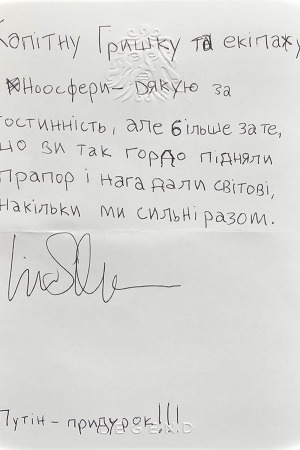 Копітну Гришку та екіпажу
Ноосфери – дякую за
гостинність, але більше за те,
що ви так гордо підняли
прапор і нагадали світові,
накільки ми сильні разом.
Путін – придурок!!!